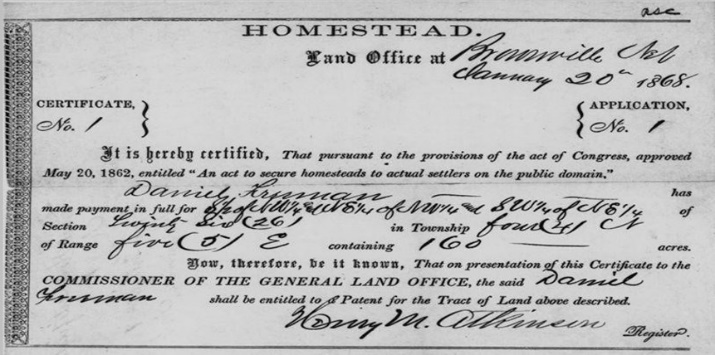 asc
HOMESTEAD.
Land Office at Brownville Neb
January 20th 1868.
CERTIFICATE, APPLICATION,
No. 1 No. 1
It is hereby certified, That pursuant to the provisions of the act of Congress, approved
May 20, 1862, entitled "An act to secure homesteads to actual settlers on the public domain,"
Daniel Freeman has
made payment in full for S½ of NW¼ & NE¼ of NW¼ and SW¼ of NE¼ of
Section Twenty Six (26) in Township four (4) N
of Range five (5) E containing 160 acres.
Now, therefore, be it known, That on presentation of this Certificate to the
COMMISSIONER OF THE GENERAL LAND OFFICE, the said Daniel
Freeman shall be entitled to a Patent for the Tract of Land above described.
Henry M. Atkinson
Register.